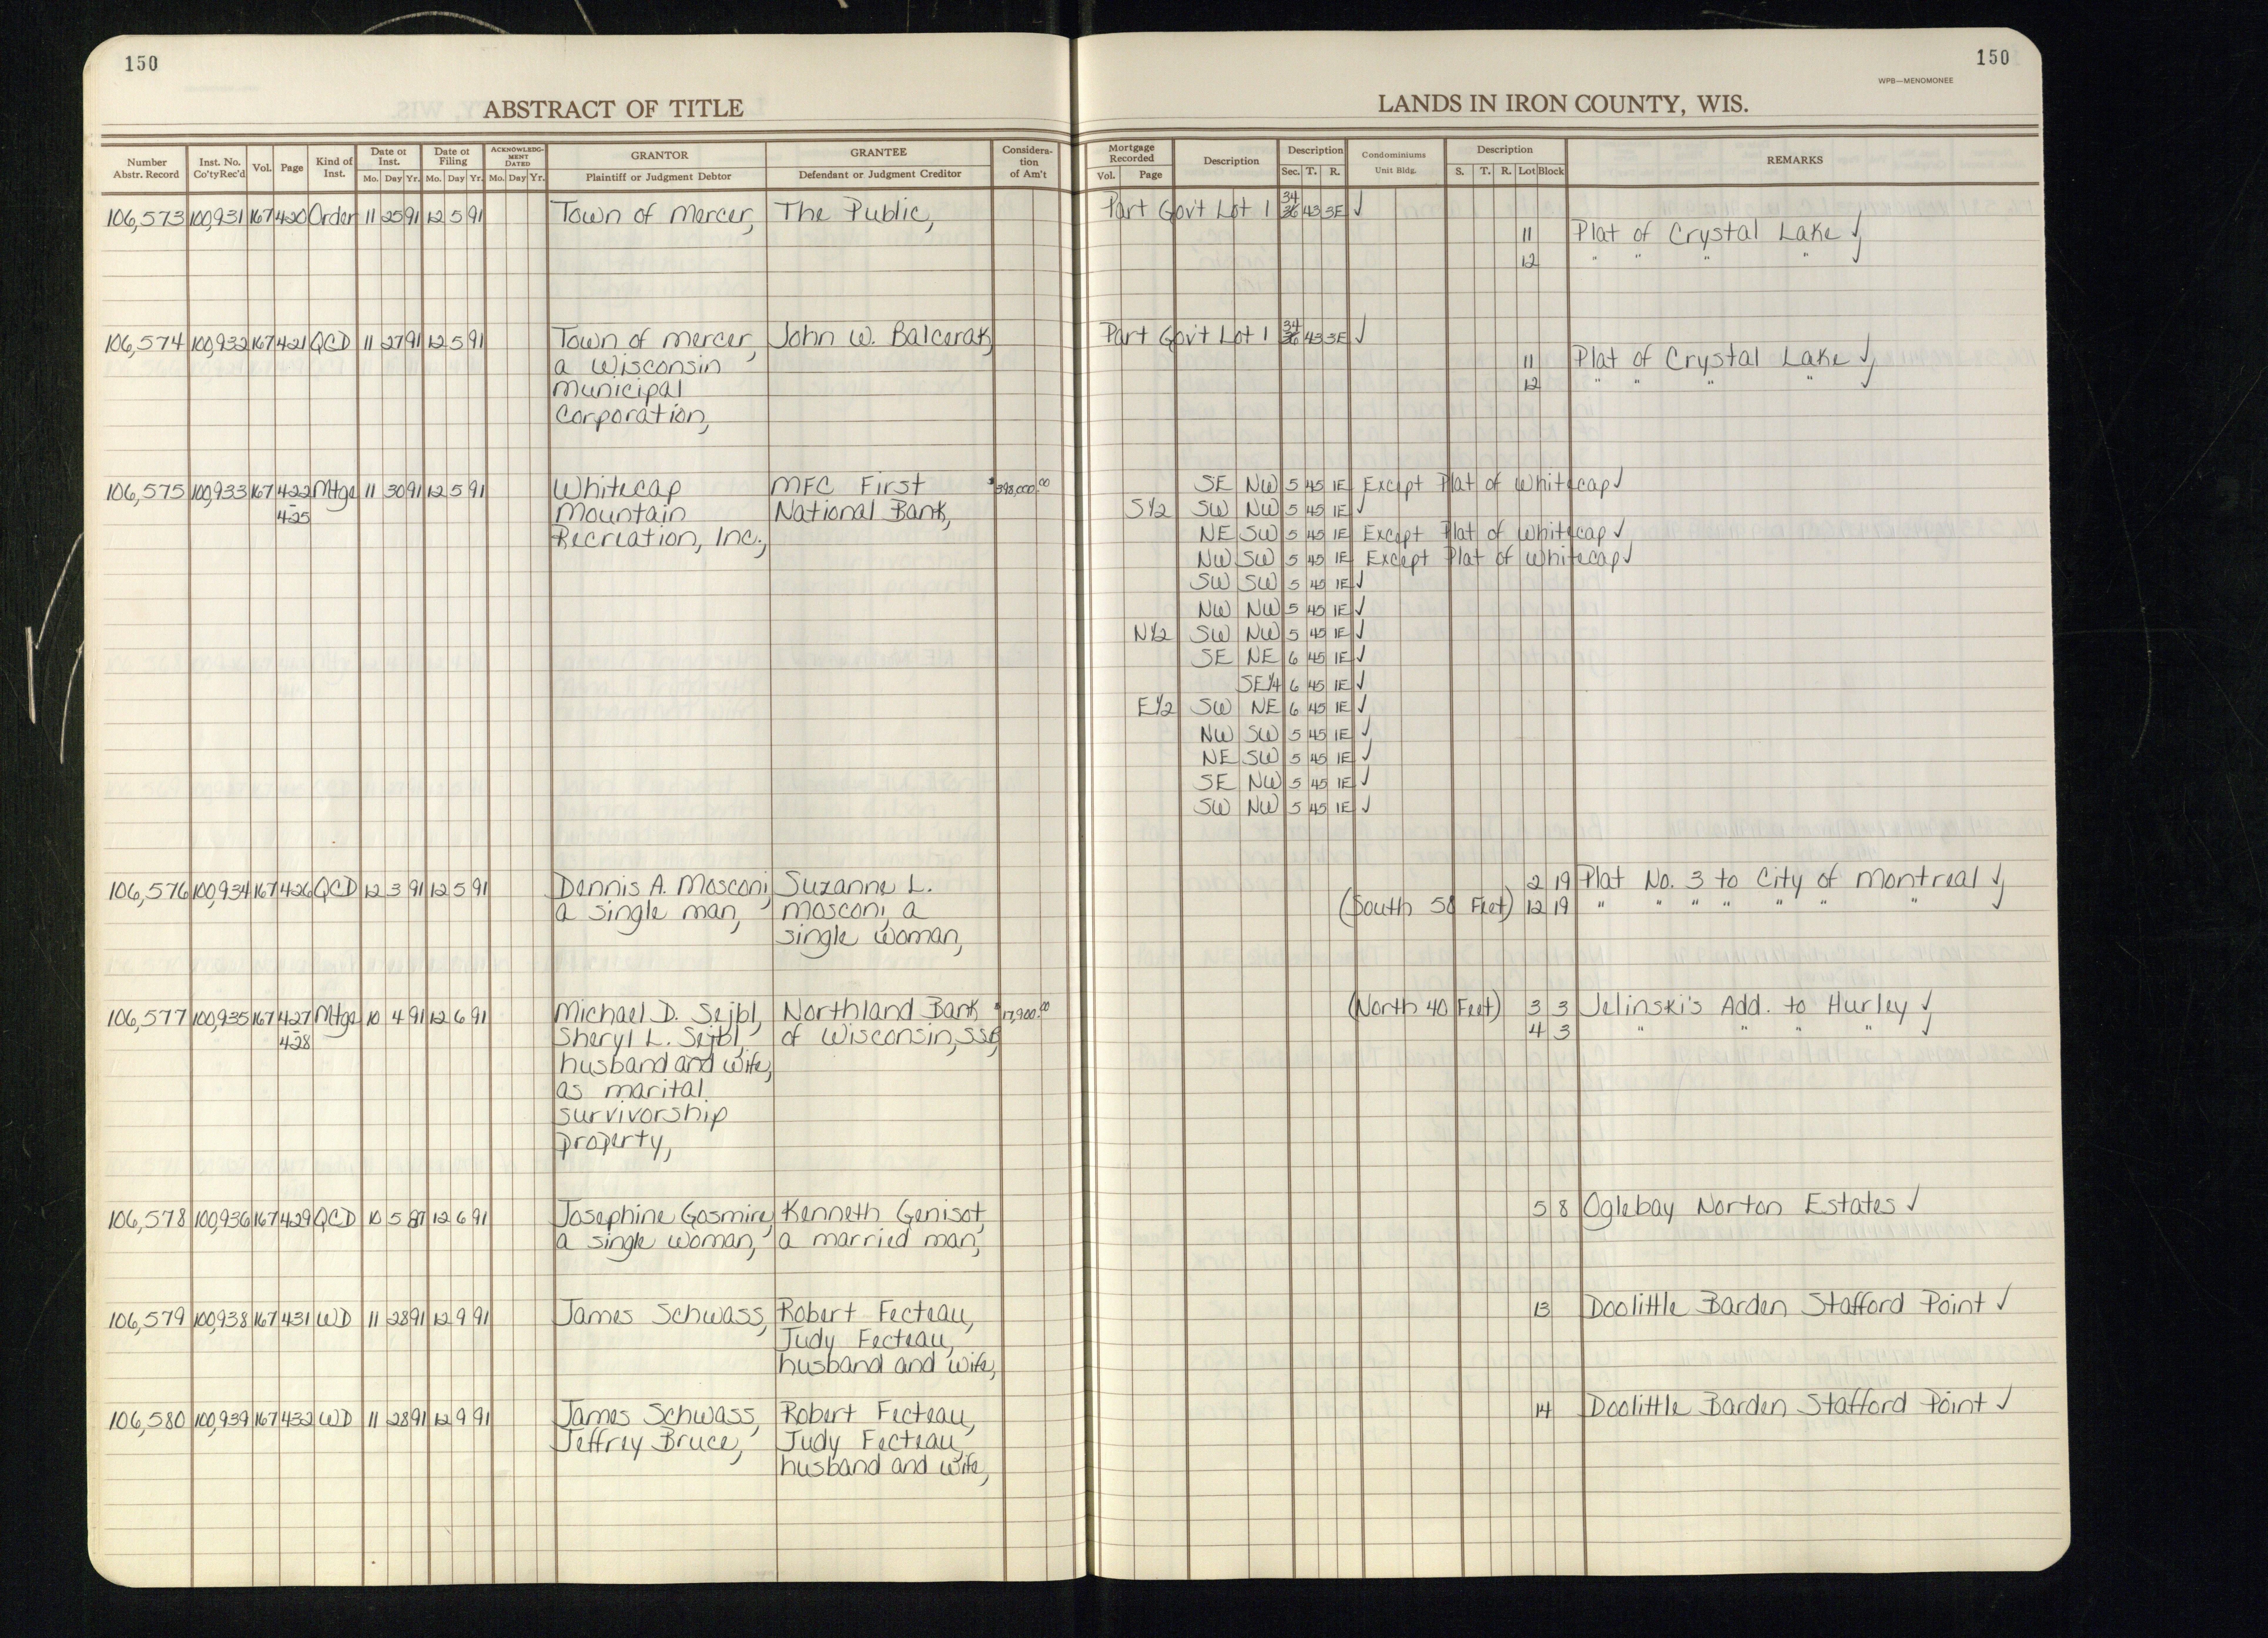 150
150
WPB—MENOMONEE
ABSTRACT OF TITLE
LANDS IN IRON COUNTY, WIS.
Number Abstr. Record | Inst. No. Co'ty Rec'd | Vol. | Page | Kind of Inst. | Date of Inst. Mo. Day Yr. | Date of Filing Mo. Day Yr. | ACKNOWLEDGMENT DATED Mo. Day Yr. | GRANTOR Plaintiff or Judgment Debtor | GRANTEE Defendant or Judgment Creditor | Consideration of Am't | Mortgage Recorded Vol. Page | Description | Description Sec. T. R. | Condominiums Unit Bldg. | Description S. T. R. Lot Block | REMARKS
106,573 100,931 167 420 Order 11 25 91 12 5 91 Town of Mercer, The Public, Part Gov't Lot 1 34 36 43 3E ✓
11 Plat of Crystal Lake ✓
12 " " " " ✓
106,574 100,932 167 421 QCD 11 27 91 12 5 91 Town of Mercer, John W. Balcerak, Part Gov't Lot 1 34 36 43 3E ✓
a Wisconsin 11 Plat of Crystal Lake ✓
Municipal 12 " " " " ✓
Corporation,
106,575 100,933 167 422 Mtge 11 30 91 12 5 91 Whitecap MFC First $398,000.00 SE NW 5 45 1E Except Plat of Whitecap ✓
- 425 Mountain National Bank, S½ SW NW 5 45 1E ✓
Recreation, Inc., NE SW 5 45 1E Except Plat of Whitecap ✓
NW SW 5 45 1E Except Plat of Whitecap ✓
SW SW 5 45 1E ✓
NW NW 5 45 1E ✓
N½ SW NW 5 45 1E ✓
SE NE 6 45 1E ✓
SE¼ 6 45 1E ✓
E½ SW NE 6 45 1E ✓
NW SW 5 45 1E ✓
NE SW 5 45 1E ✓
SE NW 5 45 1E ✓
SW NW 5 45 1E ✓
106,576 100,934 167 426 QCD 12 3 91 12 5 91 Dennis A. Mosconi, Suzanne L. 2 19 Plat No. 3 to City of Montreal ✓
a single man, Mosconi, a (South 50 Feet) 12 19 " " " " " " " ✓
single woman,
106,577 100,935 167 427 Mtge 10 4 91 12 6 91 Michael D. Sejbl, Northland Bank $17,900.00 (North 40 Feet) 3 3 Jelinski's Add. to Hurley ✓
- 428 Sheryl L. Sejbl, of Wisconsin, SSB, 4 3 " " " " ✓
husband and wife,
as marital
survivorship
property,
106,578 100,936 167 429 QCD 10 5 87 12 6 91 Josephine Gosmire, Kenneth Genisot, 5 8 Oglebay Norton Estates ✓
a single woman, a married man,
106,579 100,938 167 431 WD 11 28 91 12 9 91 James Schwass, Robert Fecteau, 13 Doolittle Barden Stafford Point ✓
Judy Fecteau,
husband and wife,
106,580 100,939 167 432 WD 11 28 91 12 9 91 James Schwass, Robert Fecteau, 14 Doolittle Barden Stafford Point ✓
Jeffrey Bruce, Judy Fecteau,
husband and wife,